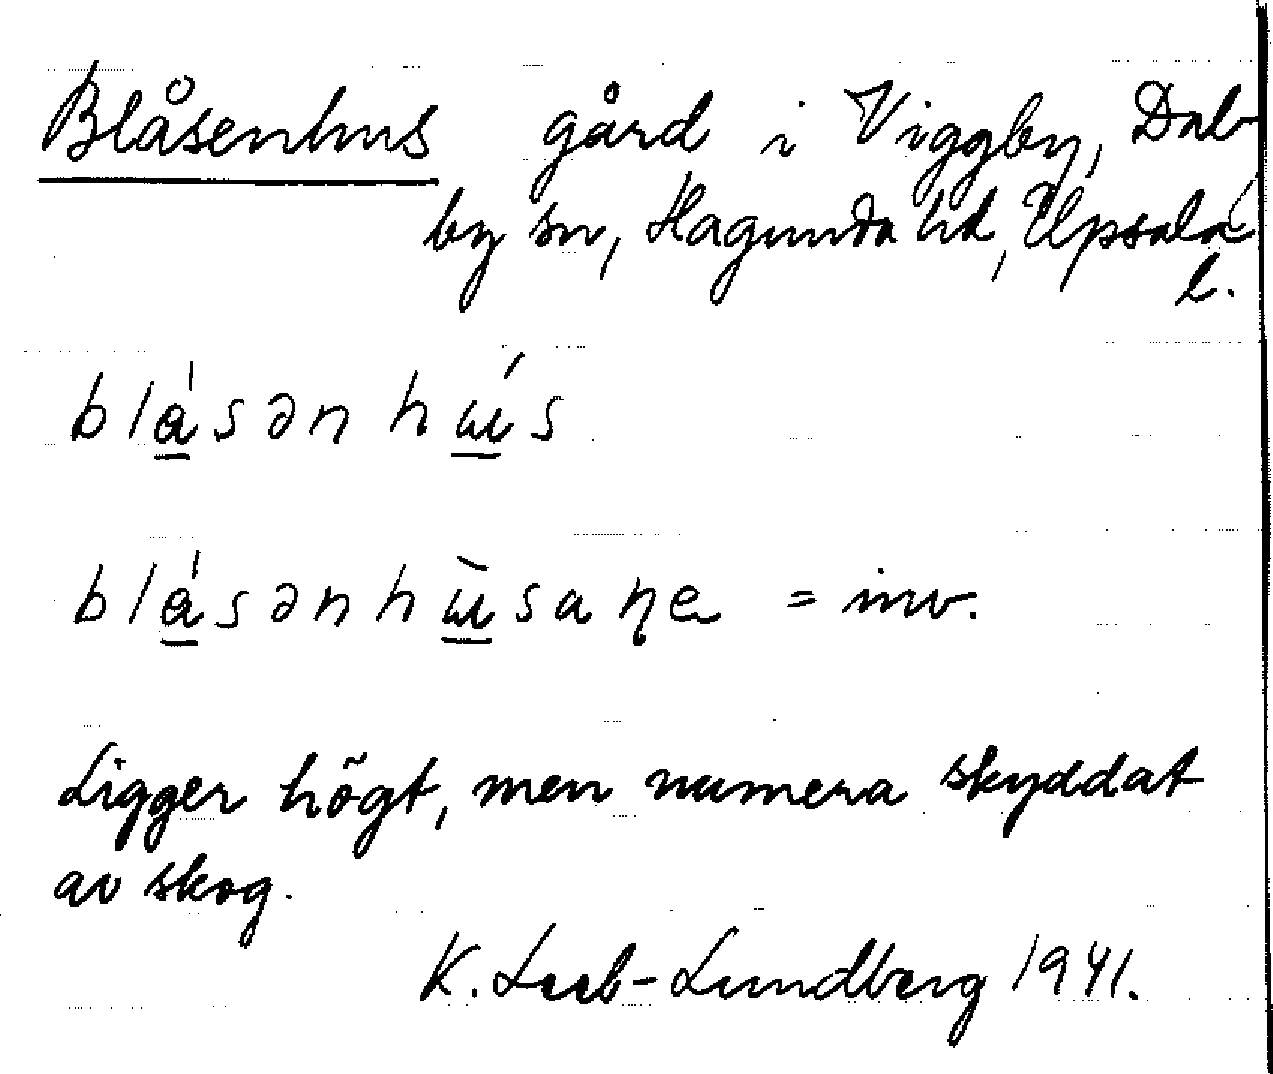 Blåsenhus gård i Viggby, Dal-
by sn, Hagunda hd, Upsala
l.
blɑ̲́sən hú̲s
blɑ̲́sənhù̲saṇe = inv.
Ligger högt, men numera skyddat
av skog.
K. Leeb-Lundberg 1941.